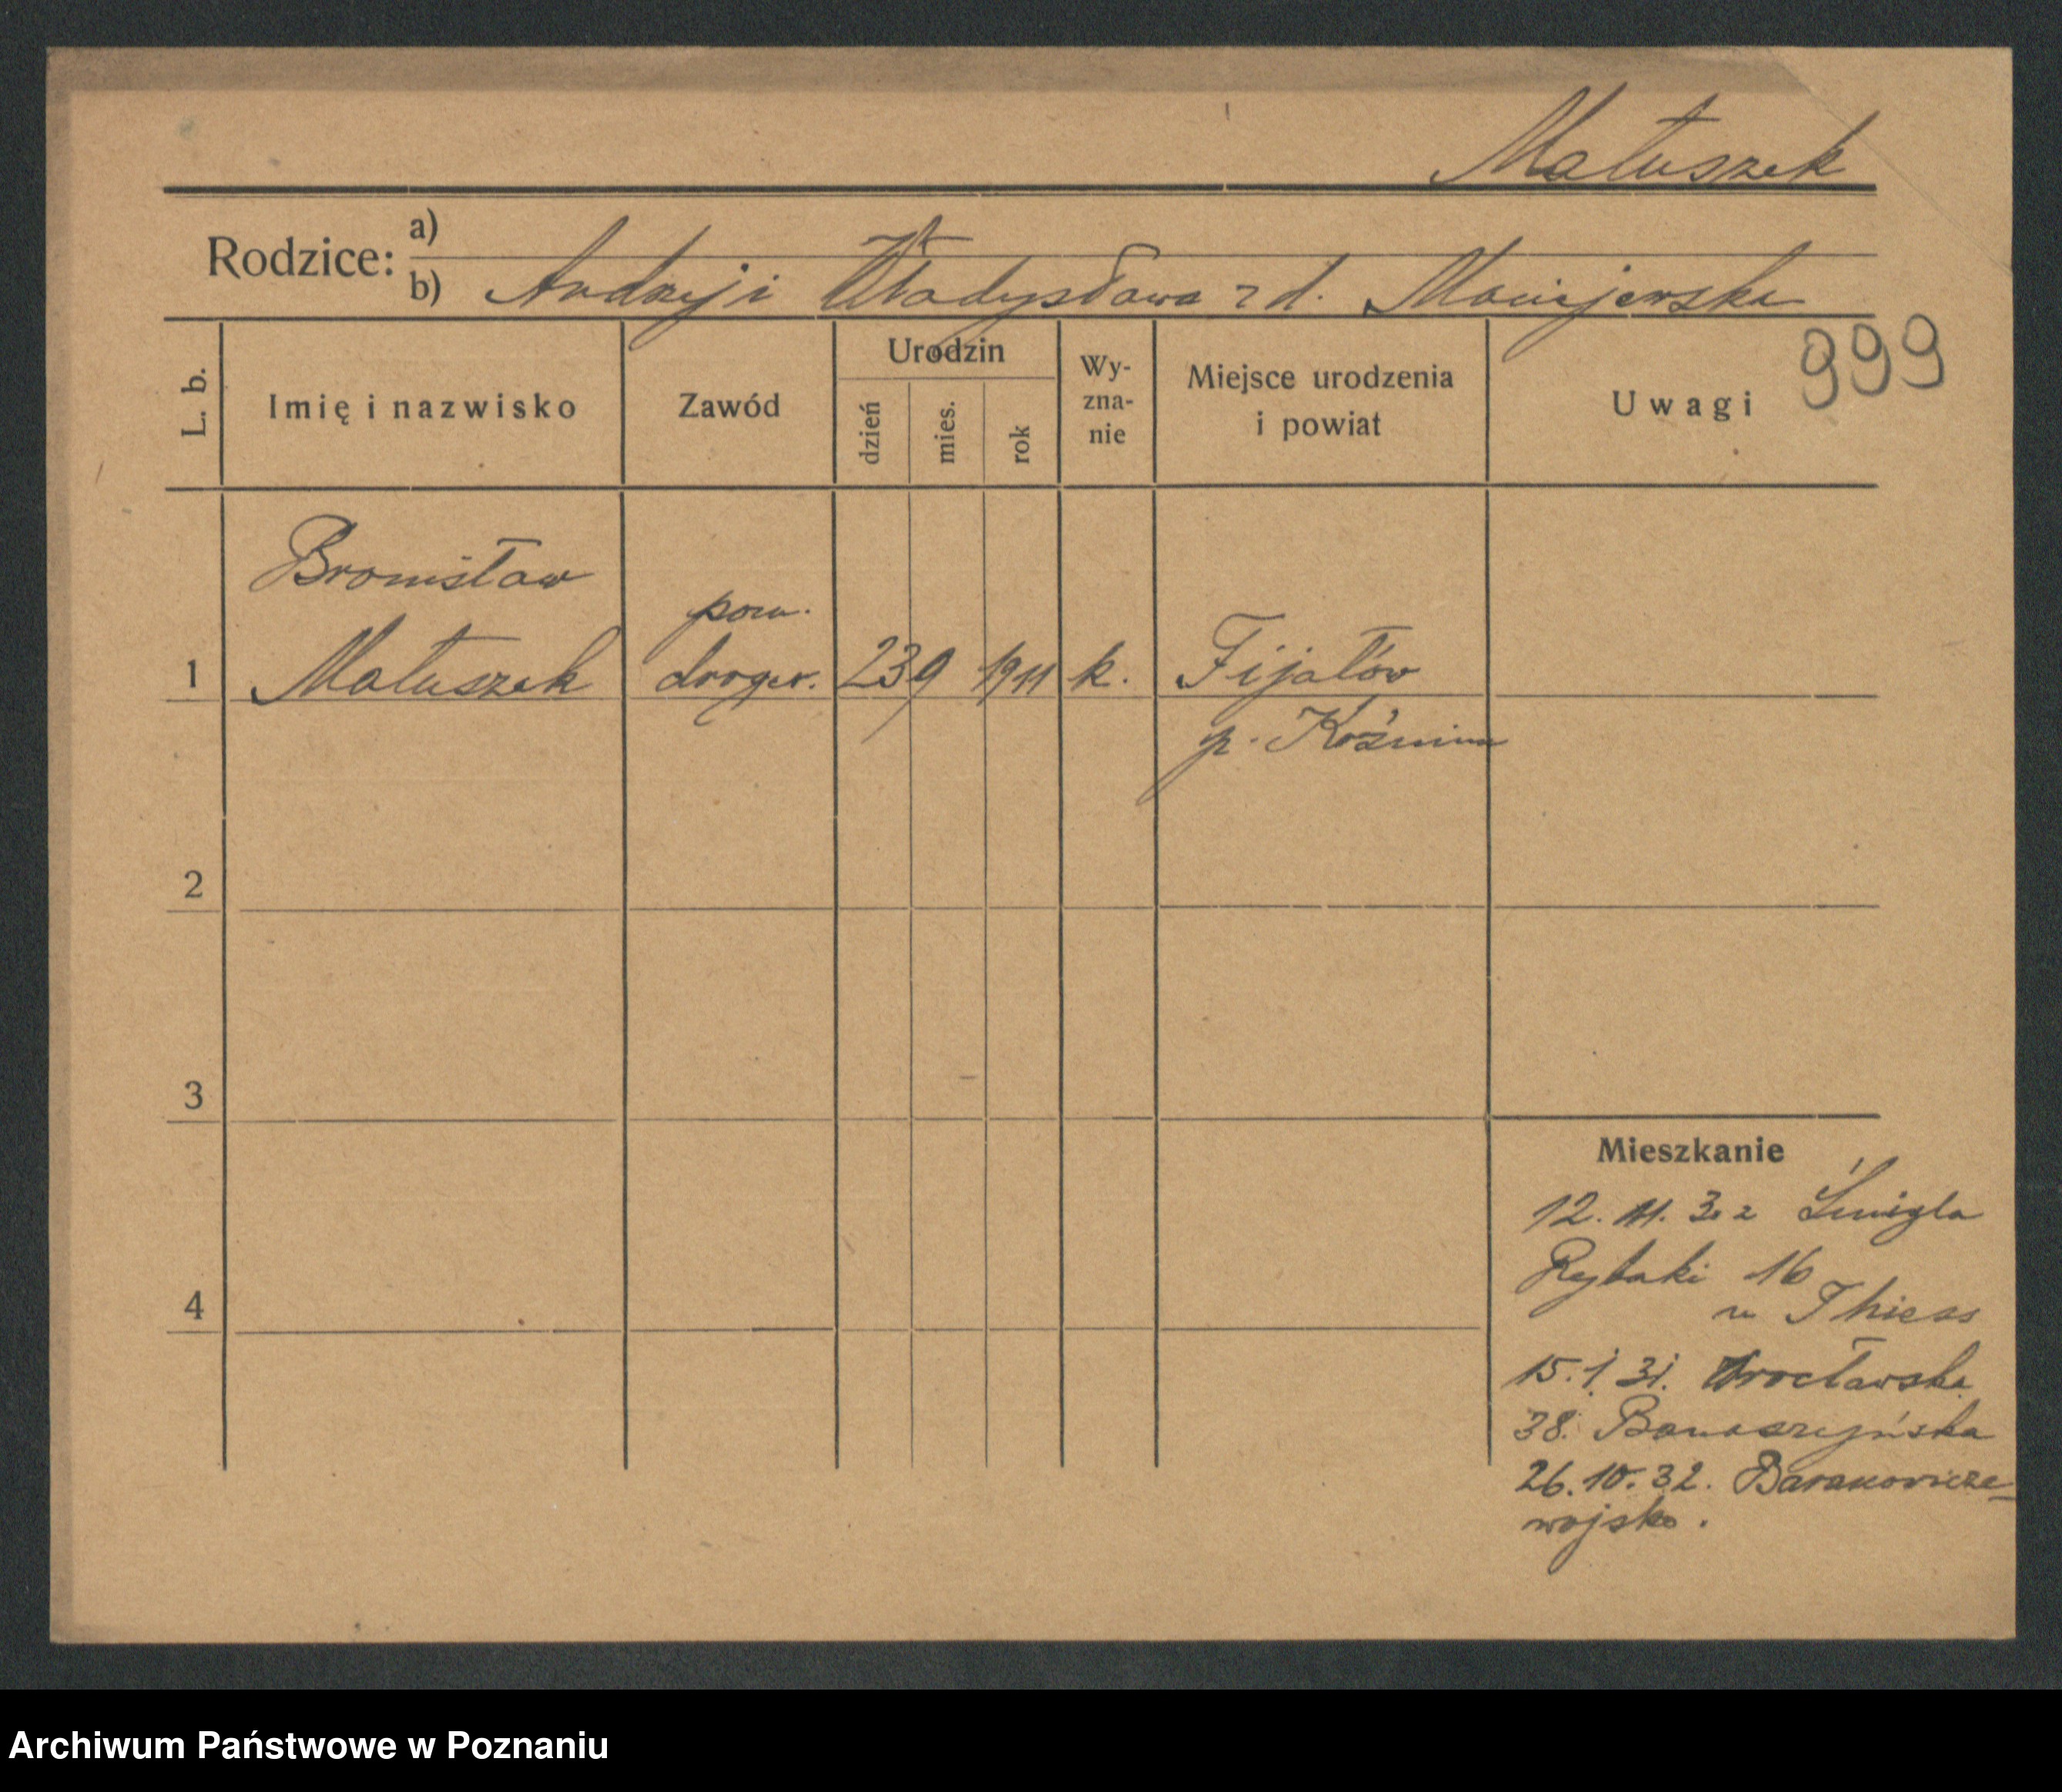 Matuszek
Rodzice:
a)
b) Andrzej i Władysława z d. Maciejewska
999
L. b.
Imię i nazwisko
Zawód
Urodzin
dzień
mies.
rok
Wy-
zna-
nie
Miejsce urodzenia
i powiat
Uwagi
Bronisław
pom.
1 Matuszek droger. 23 9 1911 k. Fijałów
p. Koźmin
2
3
4
Mieszkanie
12. 11. 30 z Śmigla
Rybaki 16
u Thieas
15. 1. 31. Wrocławska
38. Banaszyńska
26. 10. 32. Baranowicze-
wojsko.
Archiwum Państwowe w Poznaniu